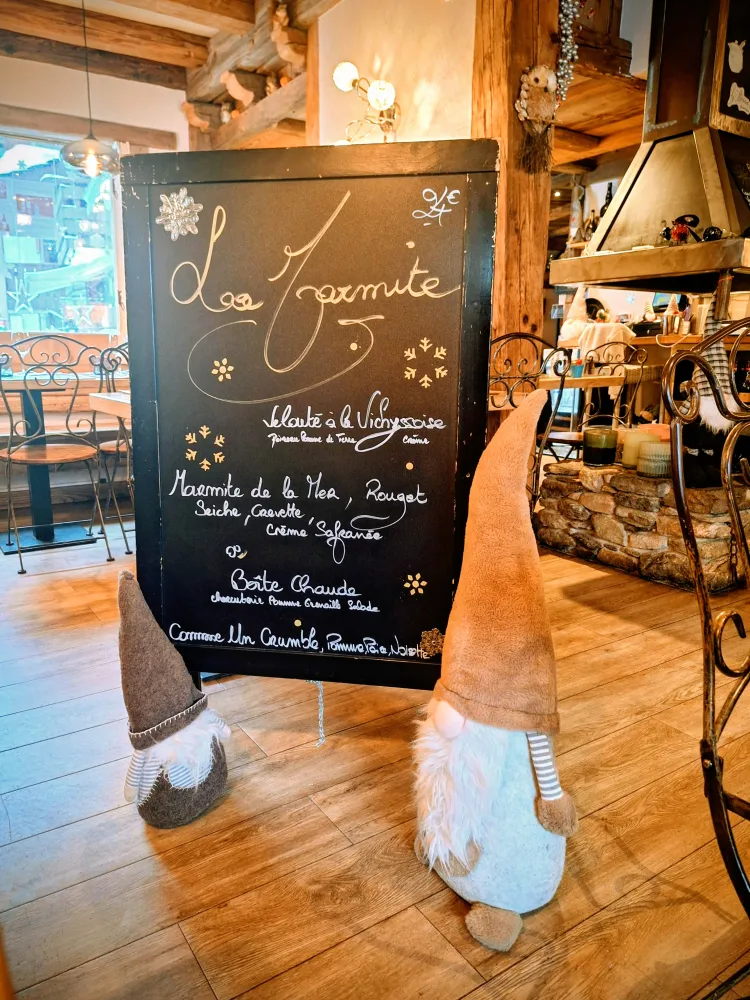 24€
La Marmite
Velouté à la Vichyssoise
Poireau Pomme de Terre Crème
Marmite de la Mer, Rouget
Seiche, Crevette,
Crème Safranée
ou
Boîte Chaude
charcuterie Pomme Grenaille Salade
Comme Un Crumble, Pomme, Poire, Noisette